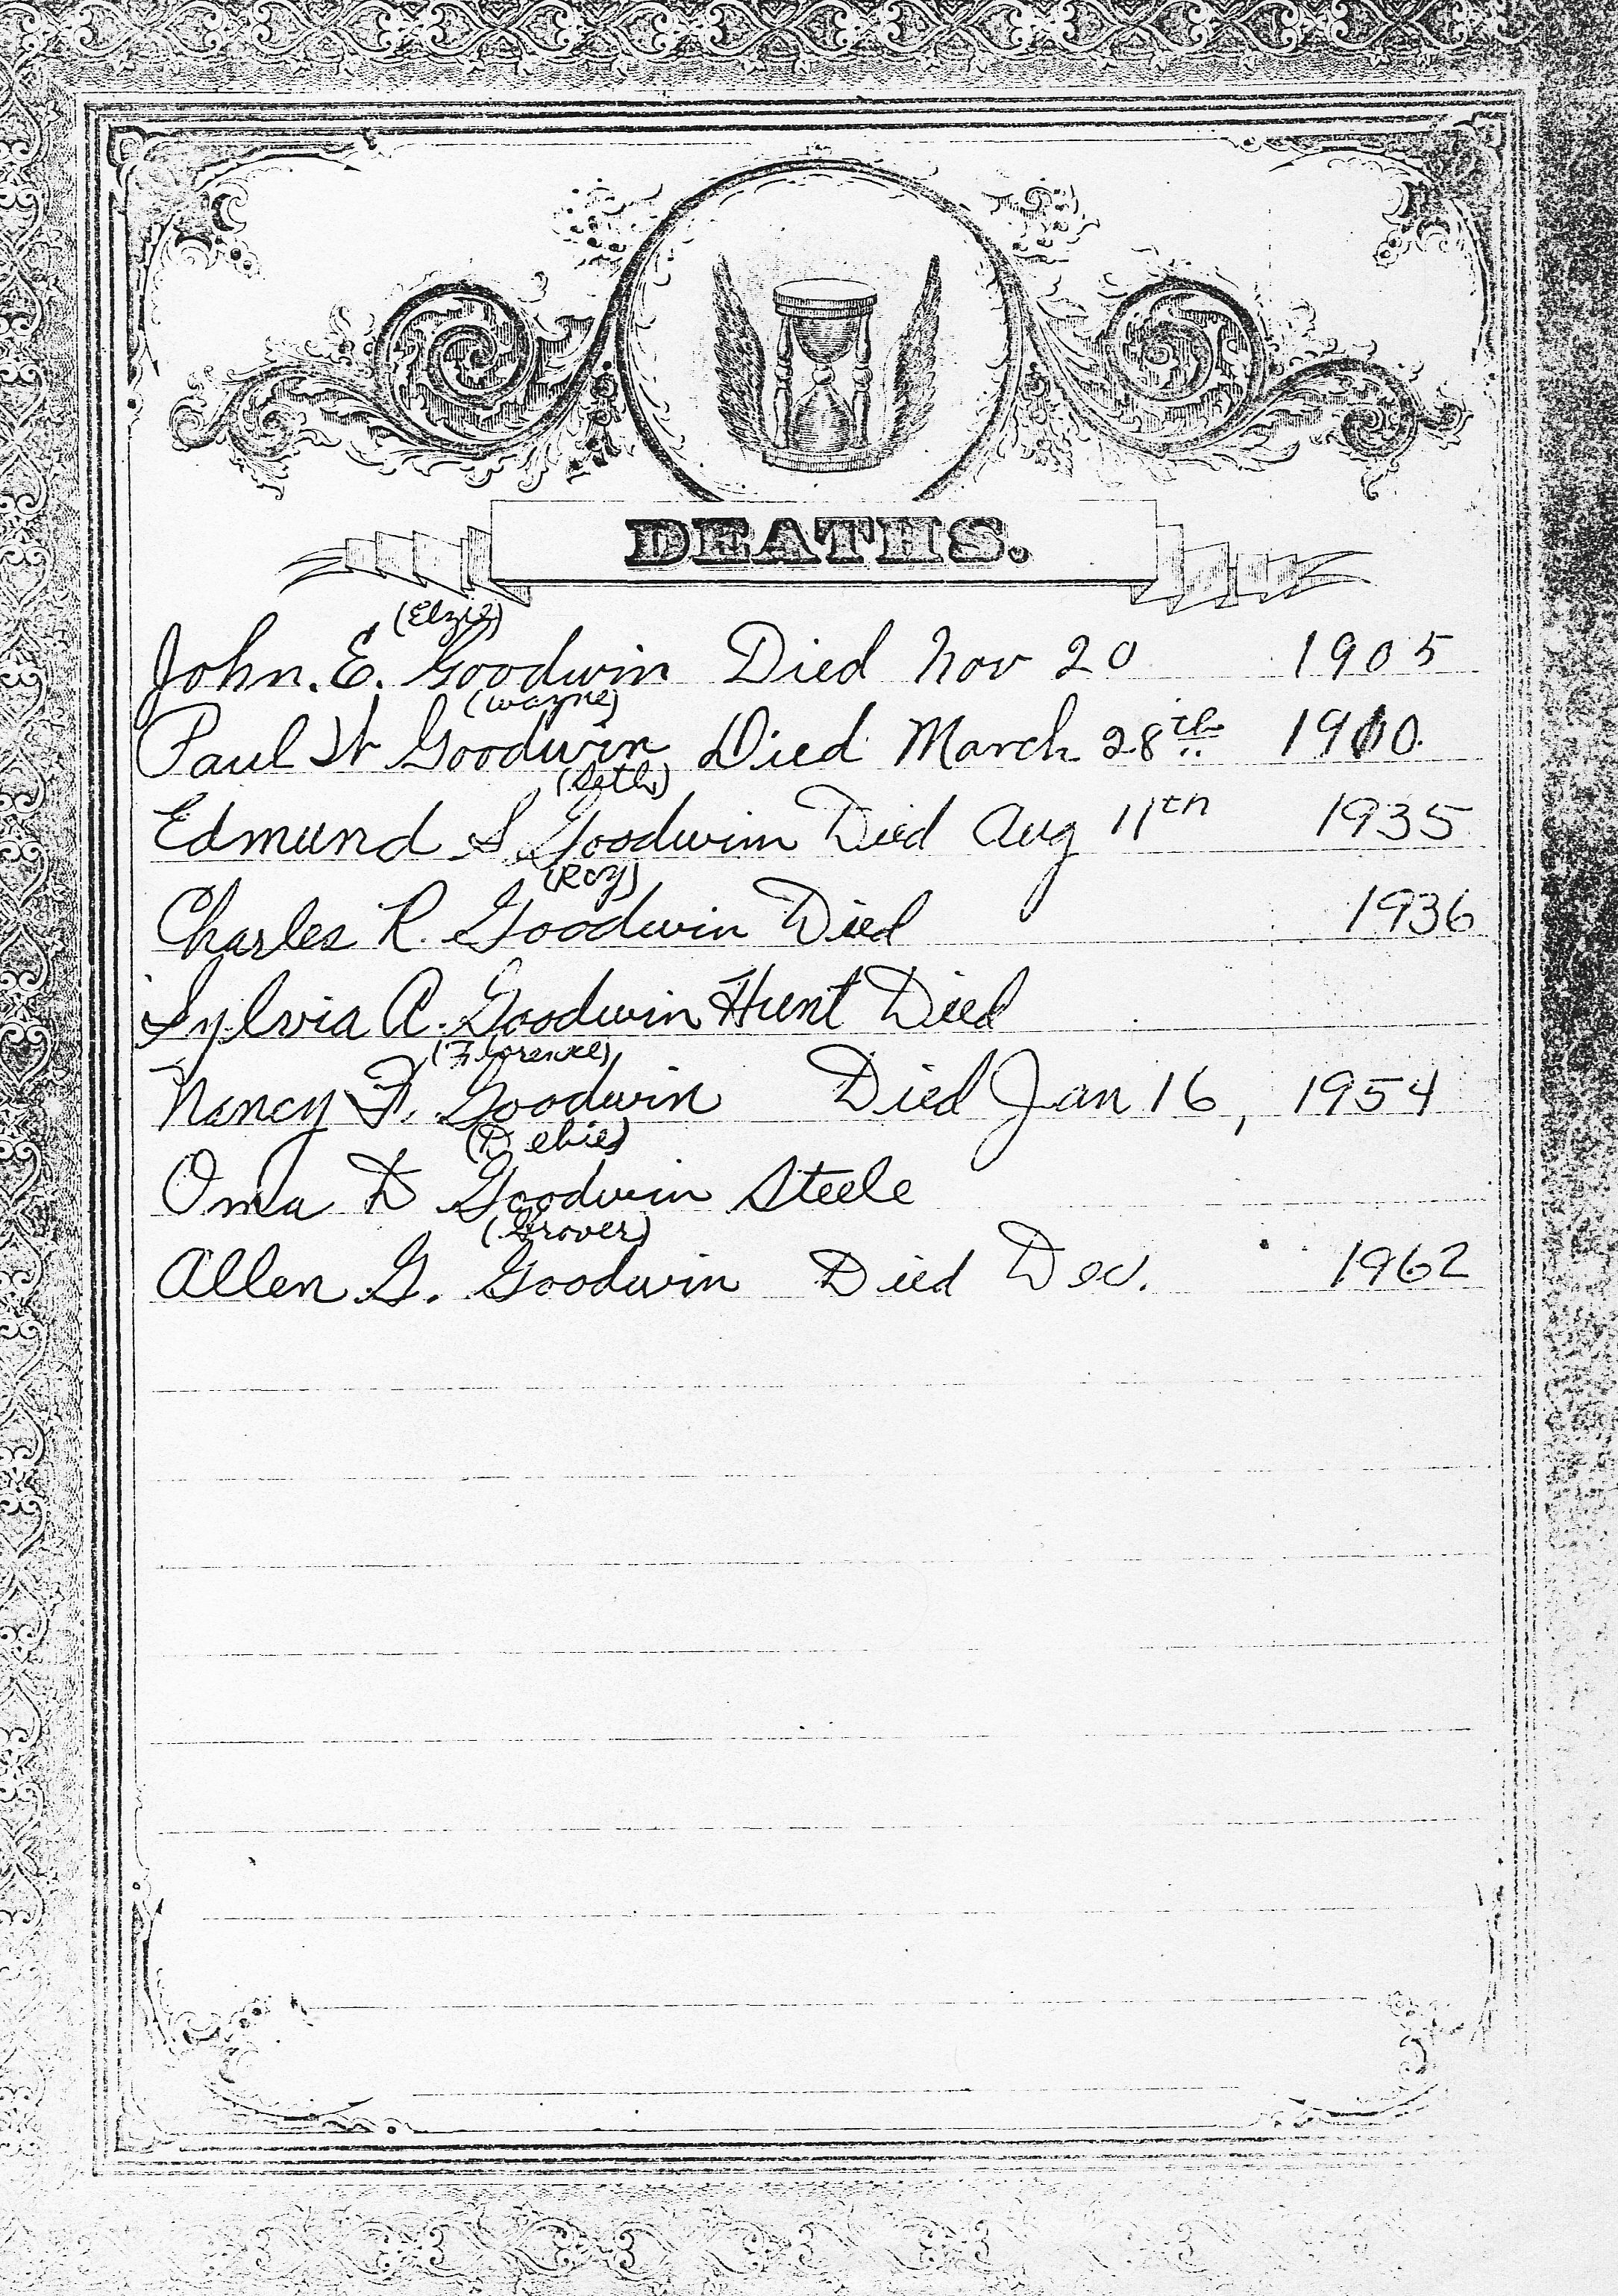 DEATHS.
(Elzie)
John. E. Goodwin Died Nov 20 1905
(Wayne)
Paul W Goodwin Died March 28th 1910
(Seth)
Edmund S Goodwin Died Aug 11th 1935
(Roy)
Charles R. Goodwin Died 1936
Sylvia A. Goodwin Hunt Died
(Florence)
Nancy F. Goodwin Died Jan 16, 1954
(Delcie)
Oma D Goodwin Steele
(Grover)
Allen G. Goodwin Died Dec. 1962